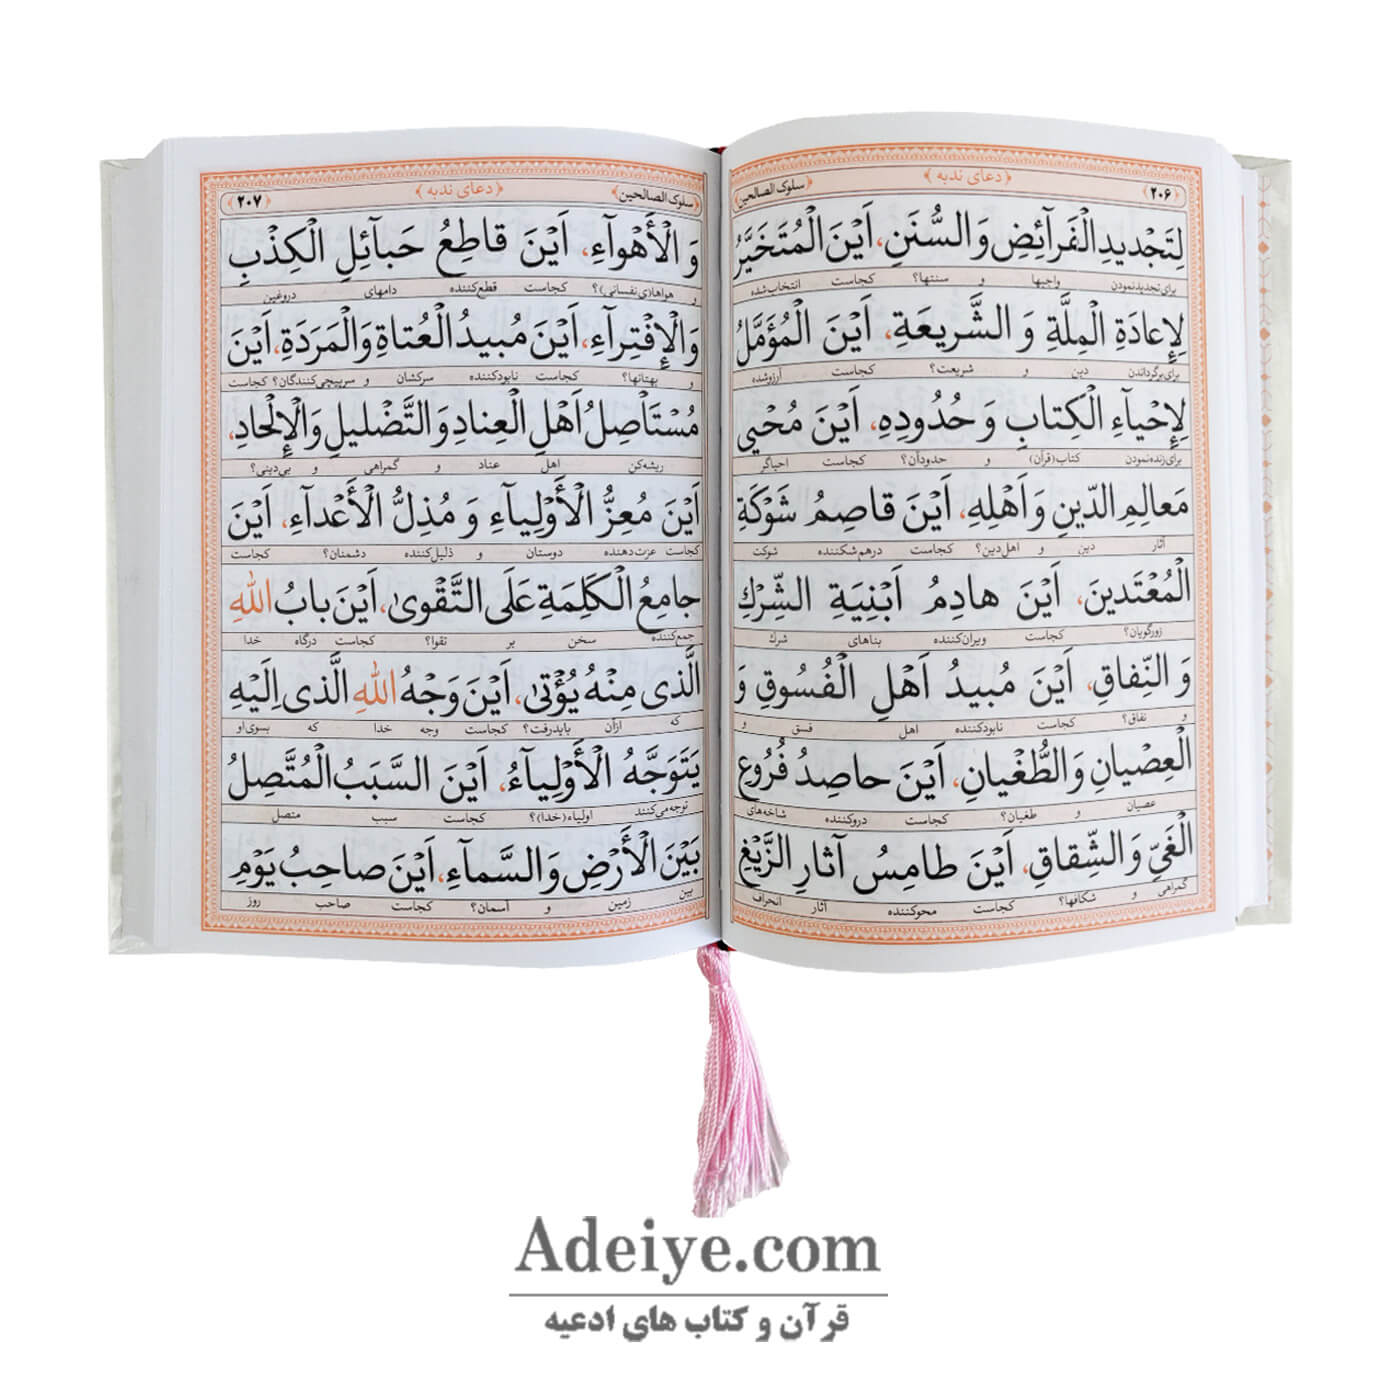 ﴿۲۰۶﴾ ﴿دعای ندبه﴾ ﴿سلوک الصالحین﴾
لِتَجْدیدِ الْفَرآئِضِ وَ السُّنَنِ، اَیْنَ الْمُتَخَیَّرُ
برای‌تجدیدنمودن واجبها و سنتها؟ کجاست انتخاب‌شده
لِاِعادَةِ الْمِلَّةِ وَ الشَّریعَةِ، اَیْنَ الْمُؤَمَّلُ
برای‌برگرداندن دین و شریعت؟ کجاست آرزوشده
لِاِحْیآءِ الْکِتابِ وَ حُدُودِهِ، اَیْنَ مُحْیی
برای‌زنده‌نمودن کتاب(قرآن) و حدودآن؟ کجاست احیاگر
مَعالِمِ الدّینِ وَ اَهْلِهِ، اَیْنَ قاصِمُ شَوْکَةِ
آثار دین و اهل‌دین؟ کجاست درهم‌شکننده شوکت
الْمُعْتَدینَ، اَیْنَ هادِمُ اَبْنِیَةِ الشِّرْكِ
زورگویان؟ کجاست ویران‌کننده بناهای شرك
وَ النِّفاقِ، اَیْنَ مُبیدُ اَهْلِ الْفُسُوقِ وَ
و نفاق؟ کجاست نابودکننده اهل فسق و
الْعِصْیانِ وَ الطُّغْیانِ، اَیْنَ حاصِدُ فُرُوعِ
عصیان و طغیان؟ کجاست دروکننده شاخه‌های
الْغَیِّ وَ الشِّقاقِ، اَیْنَ طامِسُ آثارِ الزَّیْغِ
گمراهی و شکافها؟ کجاست محوکننده آثار انحراف
﴿سلوک الصالحین﴾ ﴿دعای ندبه﴾ ﴿۲۰۷﴾
وَ الْأَهْوآءِ، اَیْنَ قاطِعُ حَبآئِلِ الْکِذْبِ
و هواها(ی‌نفسانی)؟ کجاست قطع‌کننده دامهای دروغین
وَالْاِفْتِرآءِ، اَیْنَ مُبیدُ الْعُتاةِ وَالْمَرَدَةِ، اَیْنَ
و بهتانها؟ کجاست نابودکننده سرکشان و سرپیچی‌کنندگان؟ کجاست
مُسْتَأْصِلُ اَهْلِ الْعِنادِ وَ التَّضْلیلِ وَالْاِلْحادِ،
ریشه‌کن اهل عناد و گمراهی و بی‌دینی؟
اَیْنَ مُعِزُّ الْأَوْلِیآءِ وَ مُذِلُّ الْأَعْدآءِ، اَیْنَ
کجاست عزت‌دهنده دوستان و ذلیل‌کننده دشمنان؟ کجاست
جامِعُ الْکَلِمَةِ عَلَی التَّقْویٰ، اَیْنَ بابُ اللهِ
جمع‌کننده سخن بر تقوا؟ کجاست درگاه خدا
الَّذی مِنْهُ یُؤْتیٰ، اَیْنَ وَجْهُ اللهِ الَّذی اِلَیْهِ
که ازآن بایدرفت؟ کجاست وجه خدا که بسوی‌او
یَتَوَجَّهُ الْأَوْلِیآءُ، اَیْنَ السَّبَبُ الْمُتَّصِلُ
توجه‌می‌کنند اولیاء(خدا)؟ کجاست سبب متصل
بَیْنَ الْأَرْضِ وَ السَّمآءِ، اَیْنَ صاحِبُ یَوْمِ
بین زمین و آسمان؟ کجاست صاحب روز
Adeiye.com
قرآن و کتاب های ادعیه